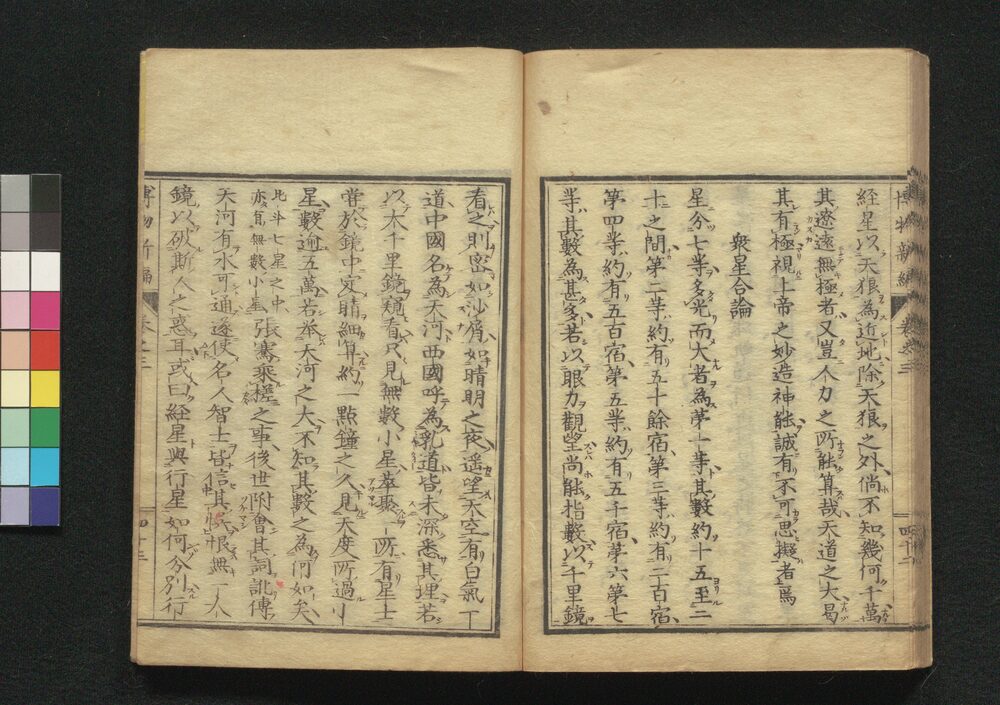 博物新編 卷之三 四十二
經星以天狼為近地除天狼之外尚不知幾何千萬
其遼遠無極者又豈人力之所能算哉天道之大曷
其有極視上帝之妙造神能誠有不可思擬者焉
衆星合論
星分七等多光而大者為第一等其數約十五至二
十之間第二等約有五十餘宿第三等約有二百宿
第四等約有五百宿第五等約有五千宿第六第七
等其數為甚多若以眼力觀望尚能指數以千里鏡
看之則密如沙屑如晴明之夜遥望天空有白氣一
道中國名為天河西國呼為乳道皆未深悉其理若
以大千里鏡窺看只見無數小星羣聚一所有星士
嘗於鏡中定睛細算約一點鐘之久見天度所過小
星數逾五萬若奉天河之大不知其數之為何如矣
北斗七星之中亦有無數小星張騫乘槎之事後世附會其詞訛傳
天河有水可通遂使名人智士皆信其 恨無一人
鏡以破斯人之惑耳或曰經星與行星如何分別行
博物新編 卷之三 四十三